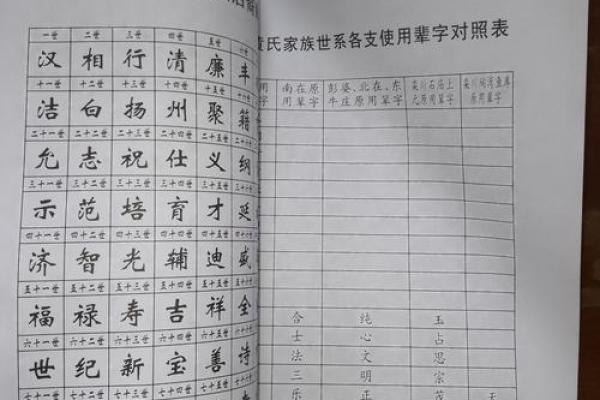 一世 二世 三世 四世 五世 六世
汉 相 行 清 廉 丰
十一世 十二世 十三世 十四世 十五世
洁 白 扬 州 聚 籍
二十一世 二十二世 二十三世 二十四世 二十五世
允 志 祝 仕 义 纲
三十一世 三十二世 三十三世 三十四世 三十五世
示 范 培 育 才 延
四十一世 四十二世 四十三世 四十四世 四十五世
济 智 光 辅 迪 盛
五十一世 五十二世 五十三世 五十四世 五十五世
福 禄 寿 吉 祥 全
六十一世 六十二世 六十三世 六十四世 六十五世
世 纪 新 宝 善 诗
七十一世 七十二世 七十三世 七十四世 七十五世
氏家族世系各支使用辈字对照表
南在原 彭婆、北在、东 栾川石庙上
用辈字 牛庄原用辈字 元原用辈字 原用辈字
合 纯 玉
士 心 占
法 文 思
三 明 宗
乐 正 茂 天